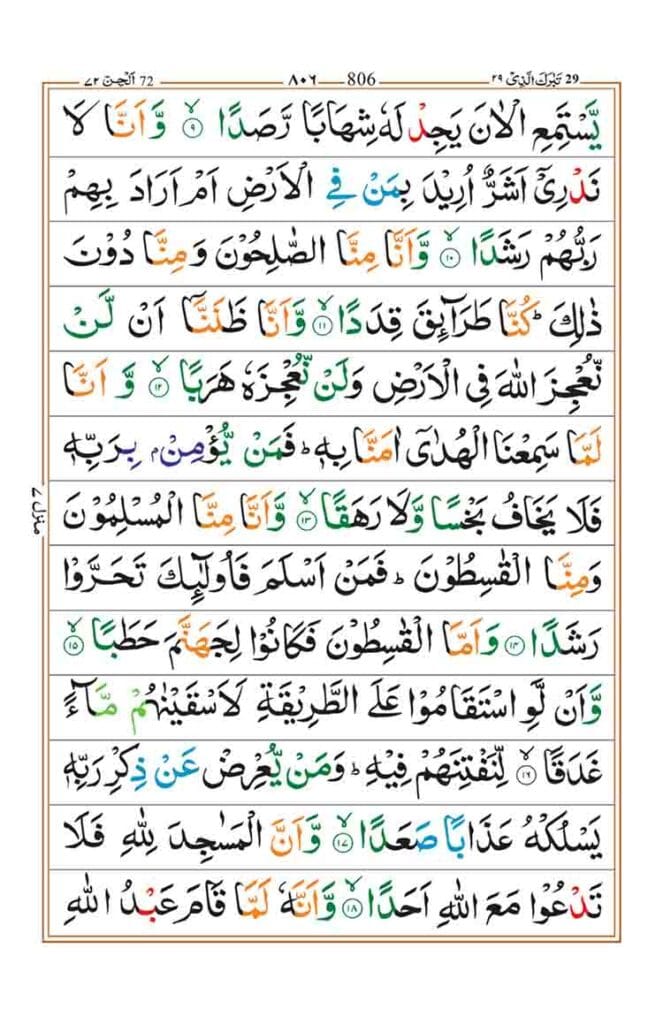 29 تَبٰرَكَ الَّذِیْ ۲۹ 806 ۸۰۶ 72 اَلْجِنّ ۷۲
یَّسْتَمِعِ الْاٰنَ یَجِدْ لَهٗ شِهَابًا رَّصَدًا ۙ۹ وَّاَنَّا لَا
نَدْرِیْۤ اَشَرٌّ اُرِیْدَ بِمَنْ فِی الْاَرْضِ اَمْ اَرَادَ بِهِمْ
رَبُّهُمْ رَشَدًا ۙ۱۰ وَّاَنَّا مِنَّا الصّٰلِحُوْنَ وَمِنَّا دُوْنَ
ذٰلِكَ ؕ كُنَّا طَرَآئِقَ قِدَدًا ۙ۱۱ وَّاَنَّا ظَنَنَّاۤ اَنْ لَّنْ
نُّعْجِزَ اللّٰهَ فِی الْاَرْضِ وَلَنْ نُّعْجِزَهٗ هَرَبًا ۙ۱۲ وَّ اَنَّا
لَمَّا سَمِعْنَا الْهُدٰۤی اٰمَنَّا بِهٖ ؕ فَمَنْ یُّؤْمِنْۢ بِرَبِّهٖ
فَلَا یَخَافُ بَخْسًا وَّلَا رَهَقًا ۙ۱۳ وَّاَنَّا مِنَّا الْمُسْلِمُوْنَ
وَمِنَّا الْقٰسِطُوْنَ ؕ فَمَنْ اَسْلَمَ فَاُولٰٓئِكَ تَحَرَّوْا
رَشَدًا ۱۴ وَاَمَّا الْقٰسِطُوْنَ فَكَانُوْا لِجَهَنَّمَ حَطَبًا ۙ۱۵
وَّاَنْ لَّوِ اسْتَقَامُوْا عَلَی الطَّرِیْقَةِ لَاَسْقَیْنٰهُمْ مَّآءً
غَدَقًا ۙ۱۶ لِّنَفْتِنَهُمْ فِیْهِ ؕ وَمَنْ یُّعْرِضْ عَنْ ذِكْرِ رَبِّهٖ
یَسْلُكْهُ عَذَابًا صَعَدًا ۙ۱۷ وَّاَنَّ الْمَسٰجِدَ لِلّٰهِ فَلَا
تَدْعُوْا مَعَ اللّٰهِ اَحَدًا ۙ۱۸ وَّاَنَّهٗ لَمَّا قَامَ عَبْدُ اللّٰهِ
منزل ۷